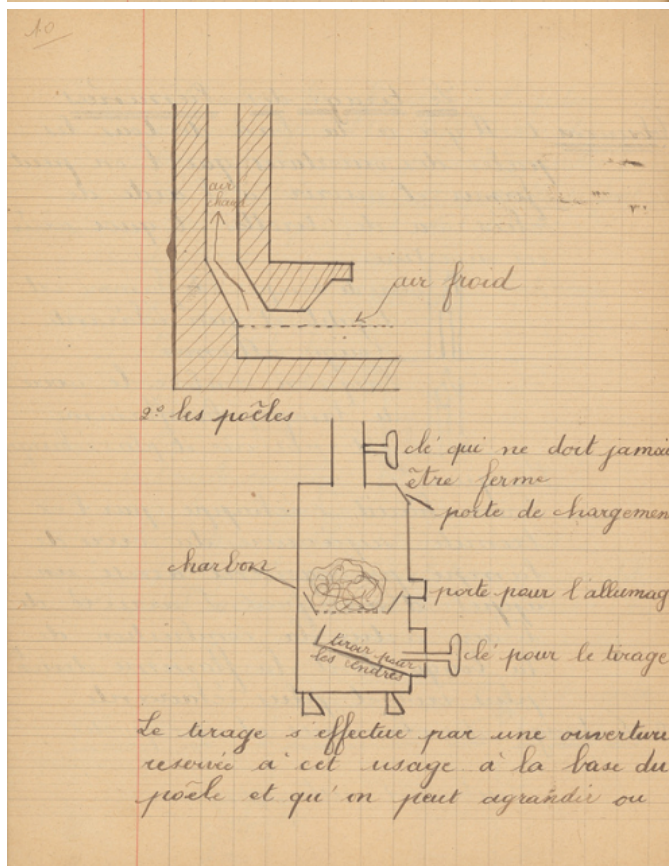 10
air
chaud
air froid
2º les pöeles
clé qui ne doit jamai
être ferme
porte de chargemen
charbon
porte pour l'allumag
tiroir pour
les cendres
clé pour le tirage
Le tirage s'effectue par une ouverture
reservée à cet usage à la base du
poële et qu'on peut agrandir ou